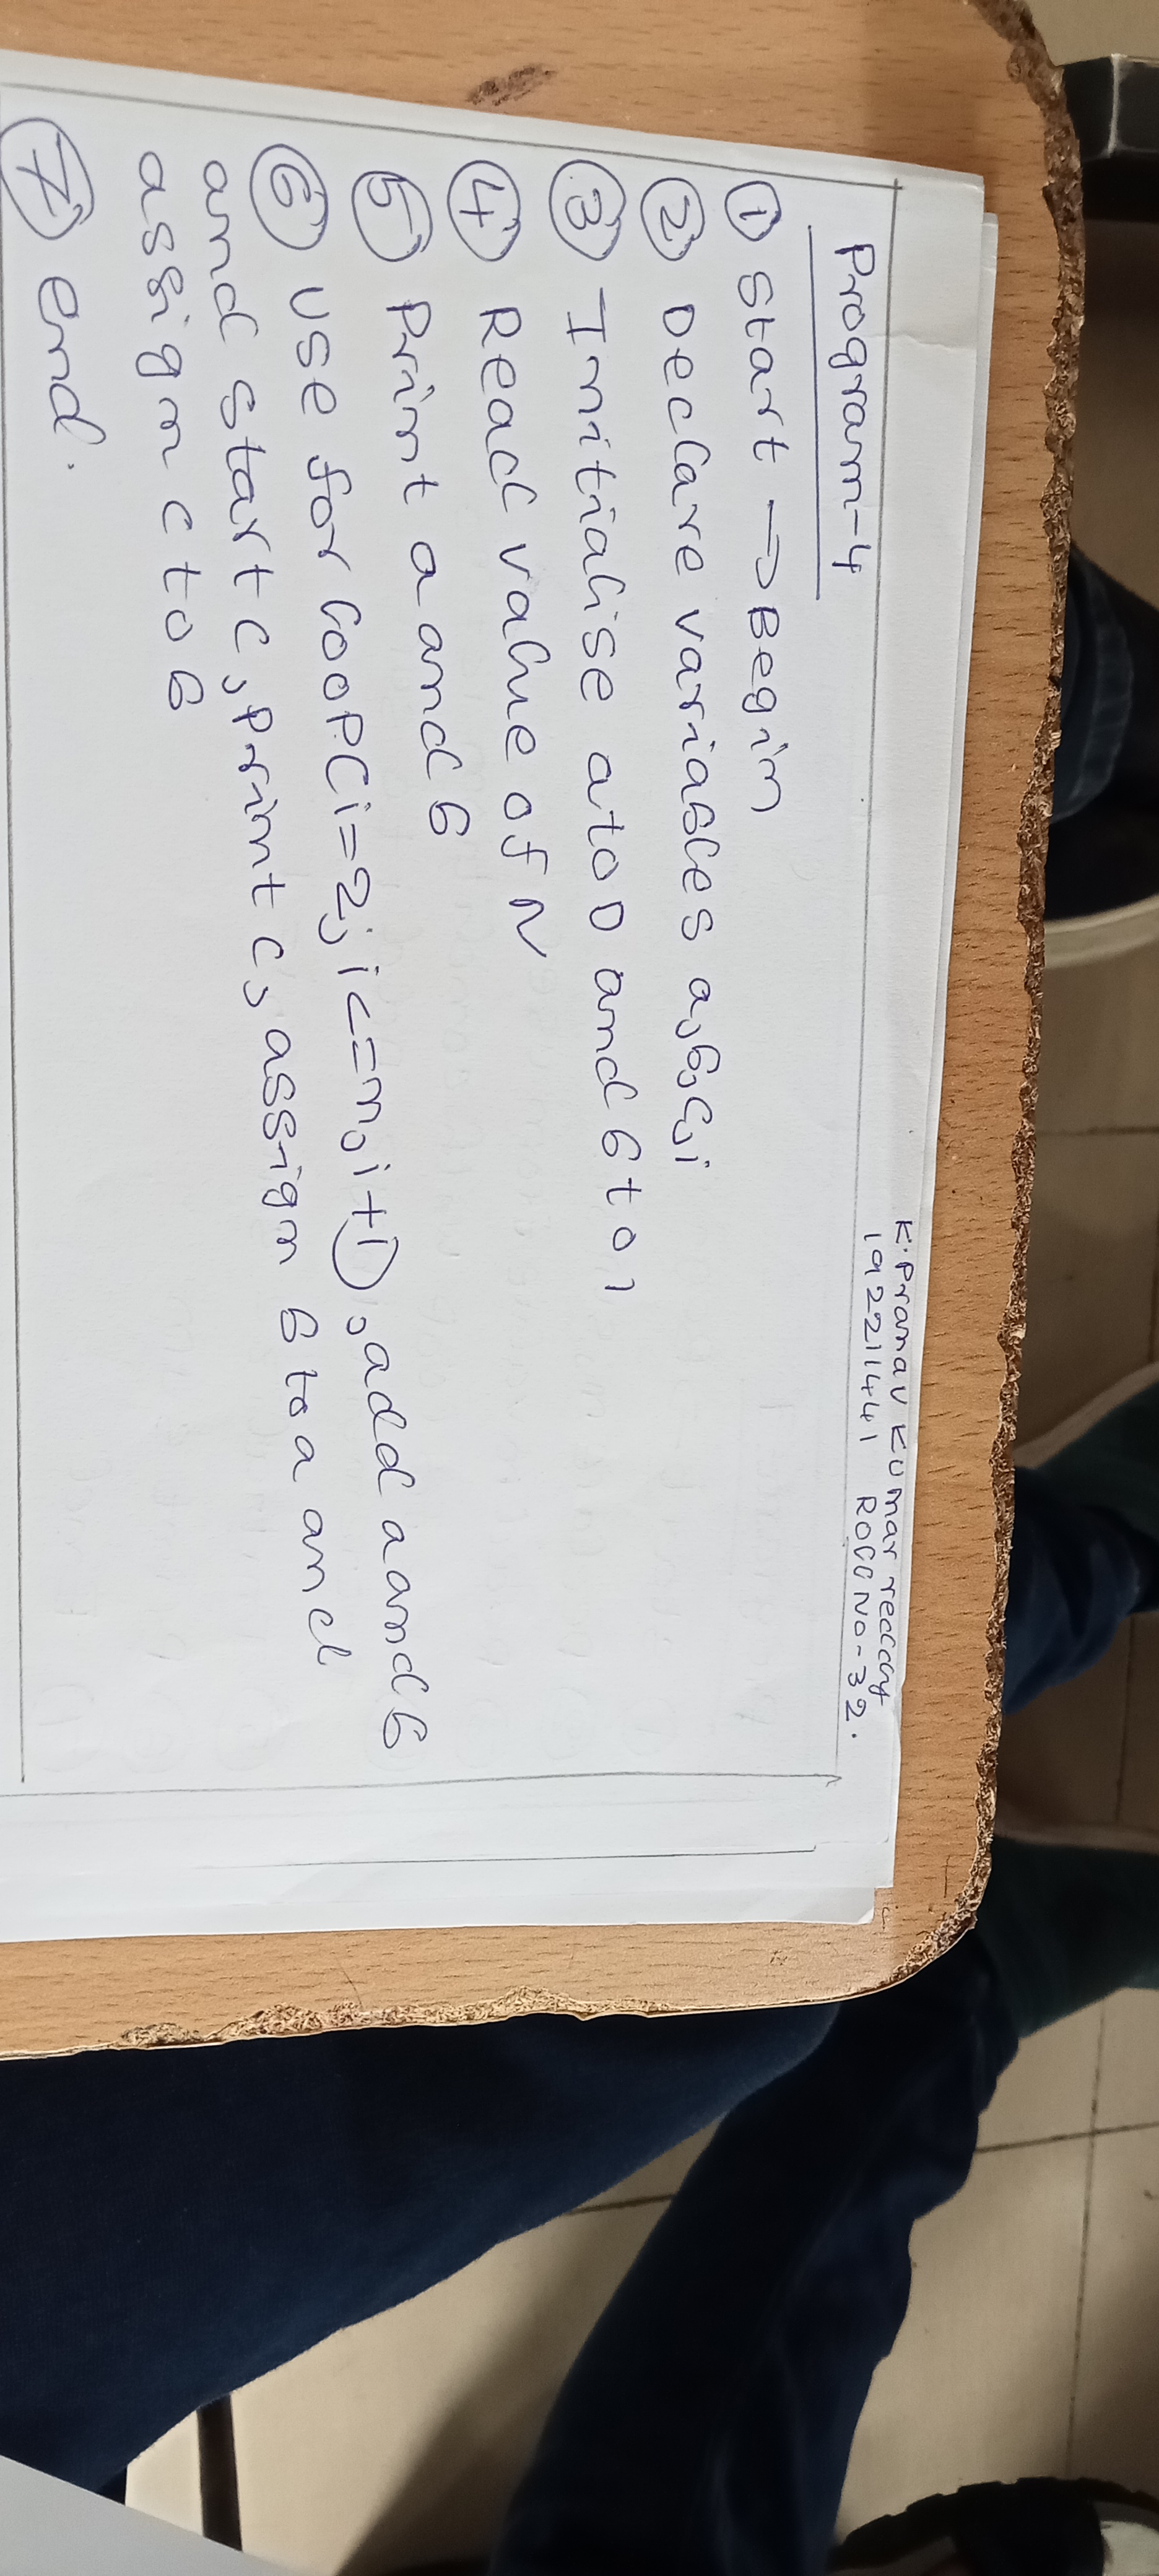 K. Pranav Kumar reddy
192211441 Roll No-32.
Program-4
① Start → Begin
② Declare variables a,b,c,i
③ Initialise a to 0 and b to 1
④ Read value of N
⑤ Print a and b
⑥ use for loop(i=2; i<=n, i+1), add a and b
and start c, print c, assign b to a and
assign c to b
⑦ end.